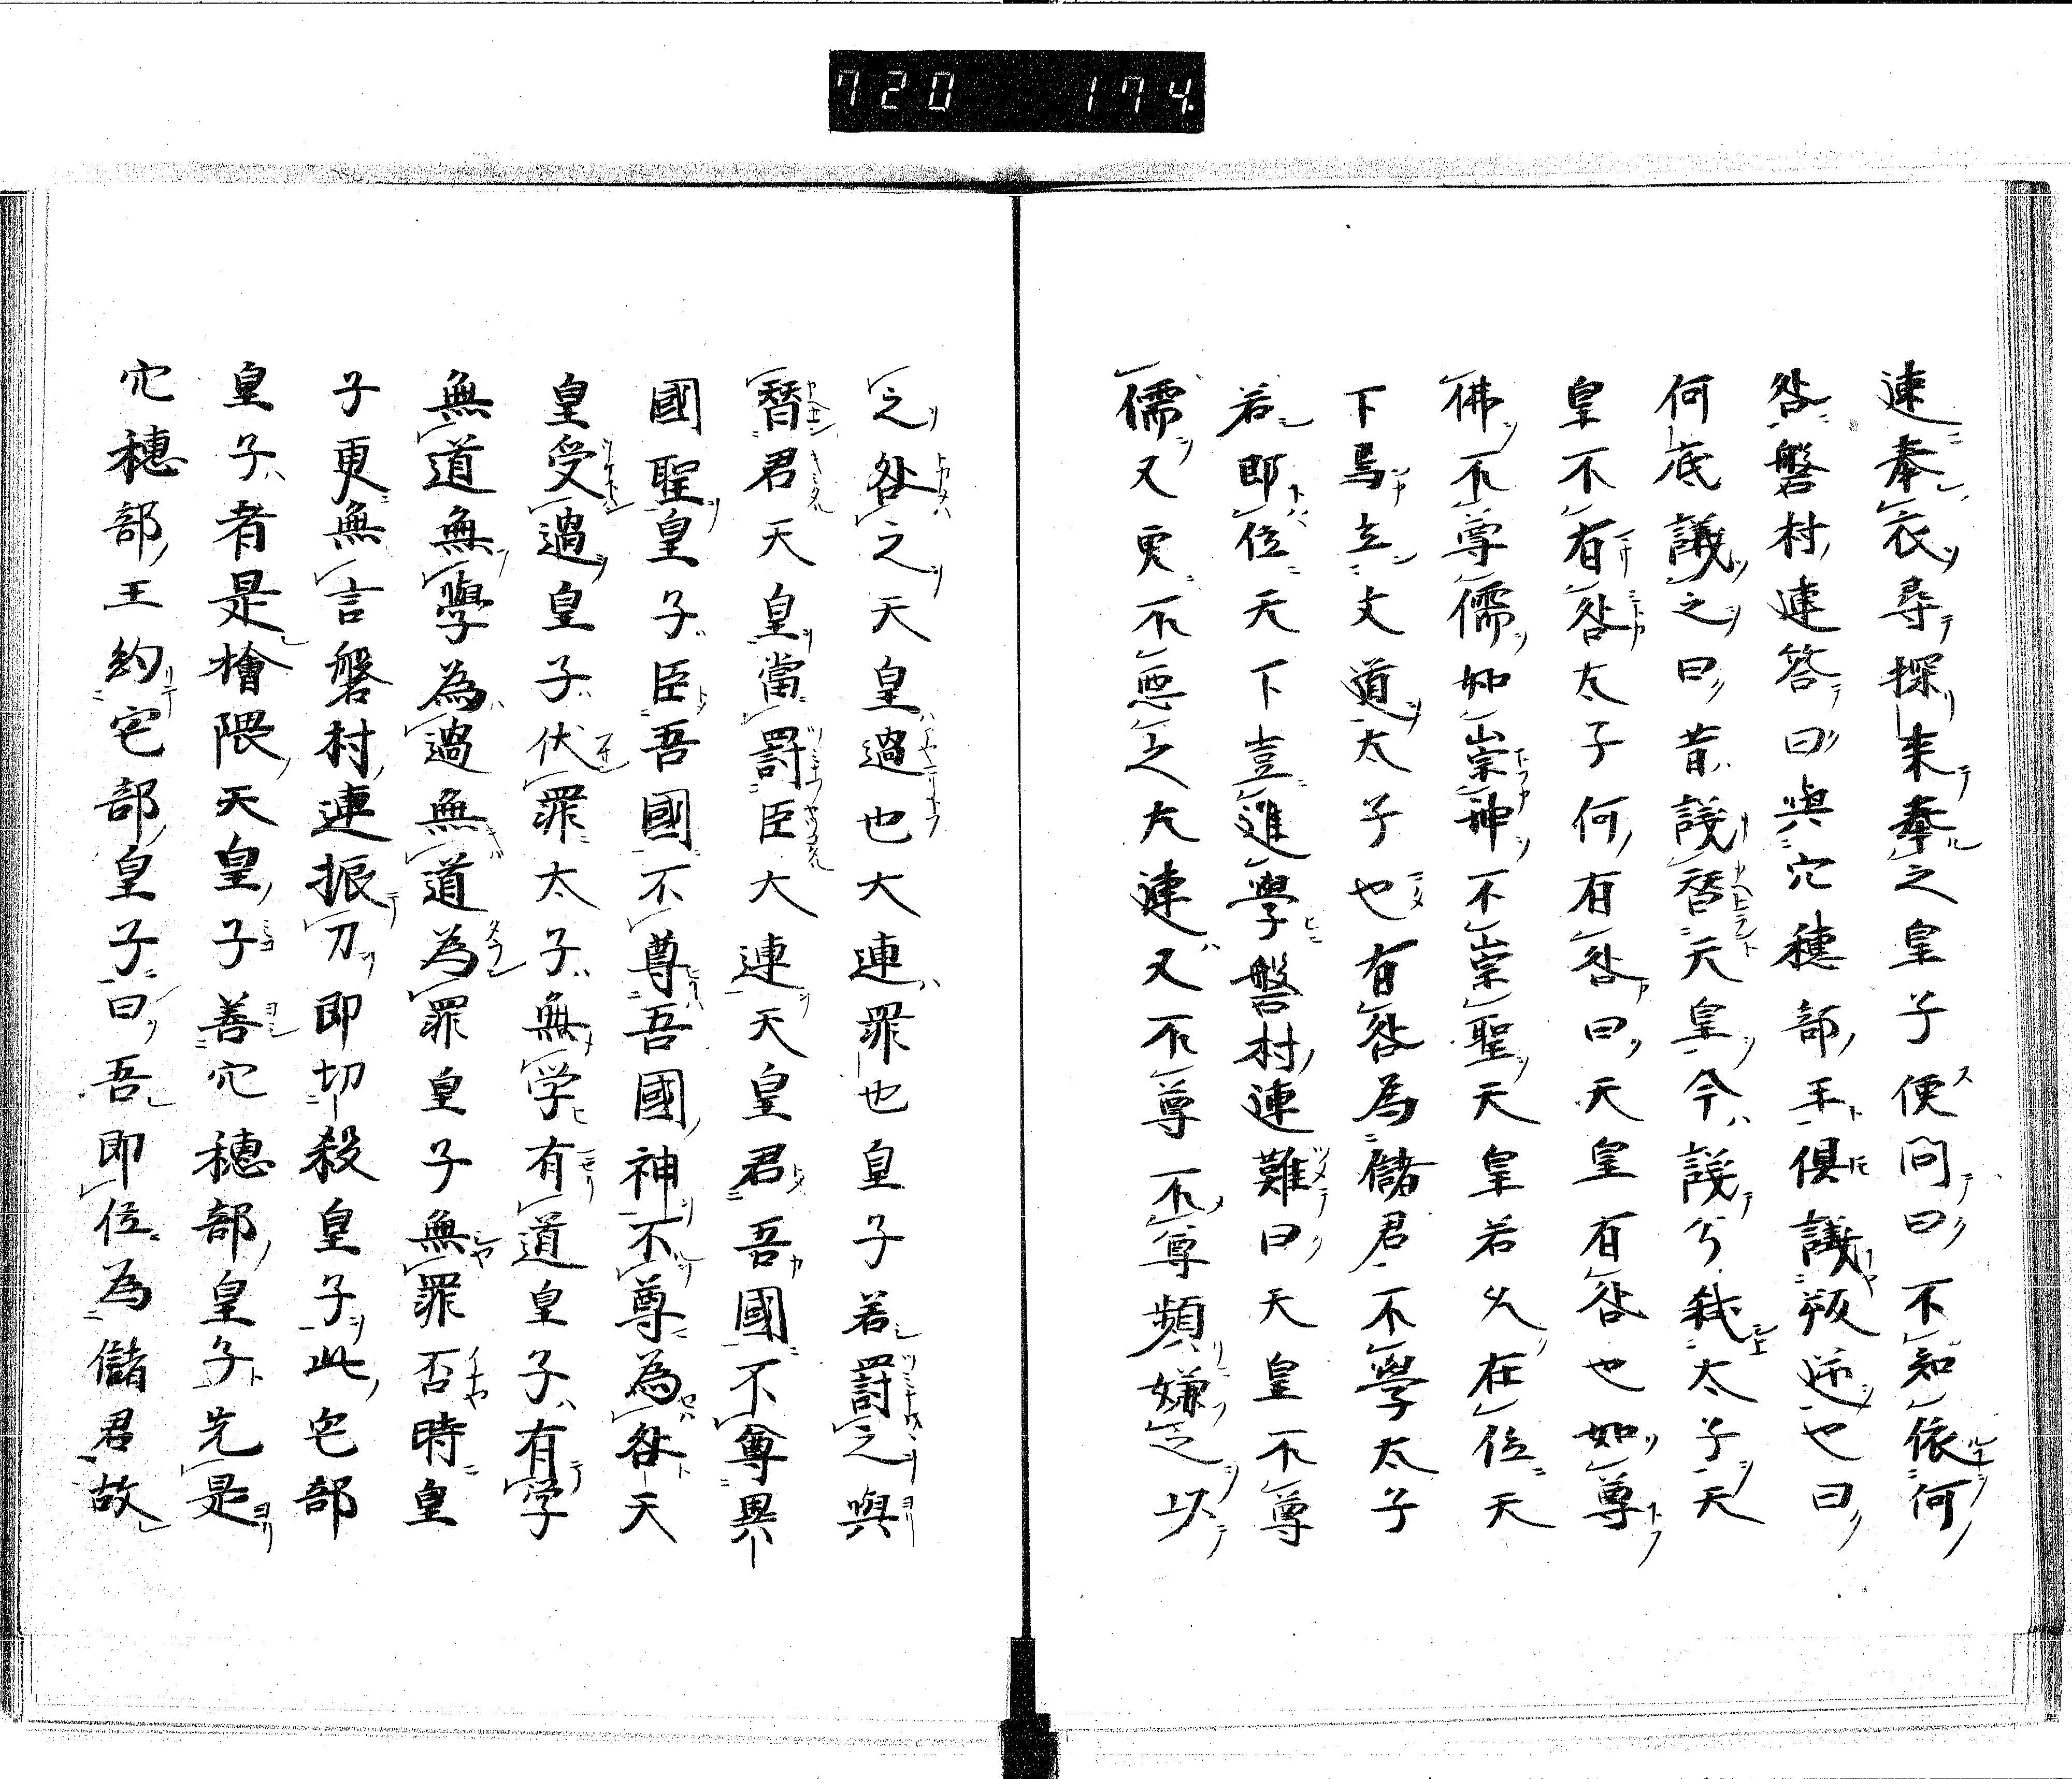 720 174
速奉衣尋探来奉之皇子便問曰不知依何
咎磐村連答曰與穴穂部王俱議叛逆也曰
何底議之曰昔議替天皇今議兮弑太子天
皇不有咎太子何有咎曰天皇有咎也如尊
佛不尊儒如崇神不崇聖天皇若久在位天
下焉立文道太子也有咎為儲君不學太子
若即位天下豈進學磐村連難曰天皇不尊
儒又更不惡之大連又不尊不尊頻嫌之以
之咎之天皇過也大連罪也皇子若罰之與
替君天皇當罰臣大連天皇君吾國不尊異
國聖皇子臣吾國不尊吾國神不尊為咎天
皇受過皇子伏罪太子無学有道皇子有学
無道無學為過無道為罪皇子無罪否時皇
子更無言磐村連振刀即切殺皇子此宅部
皇子者是檜隈天皇子善穴穂部皇子先是
穴穂部王約宅部皇子曰吾即位為儲君故